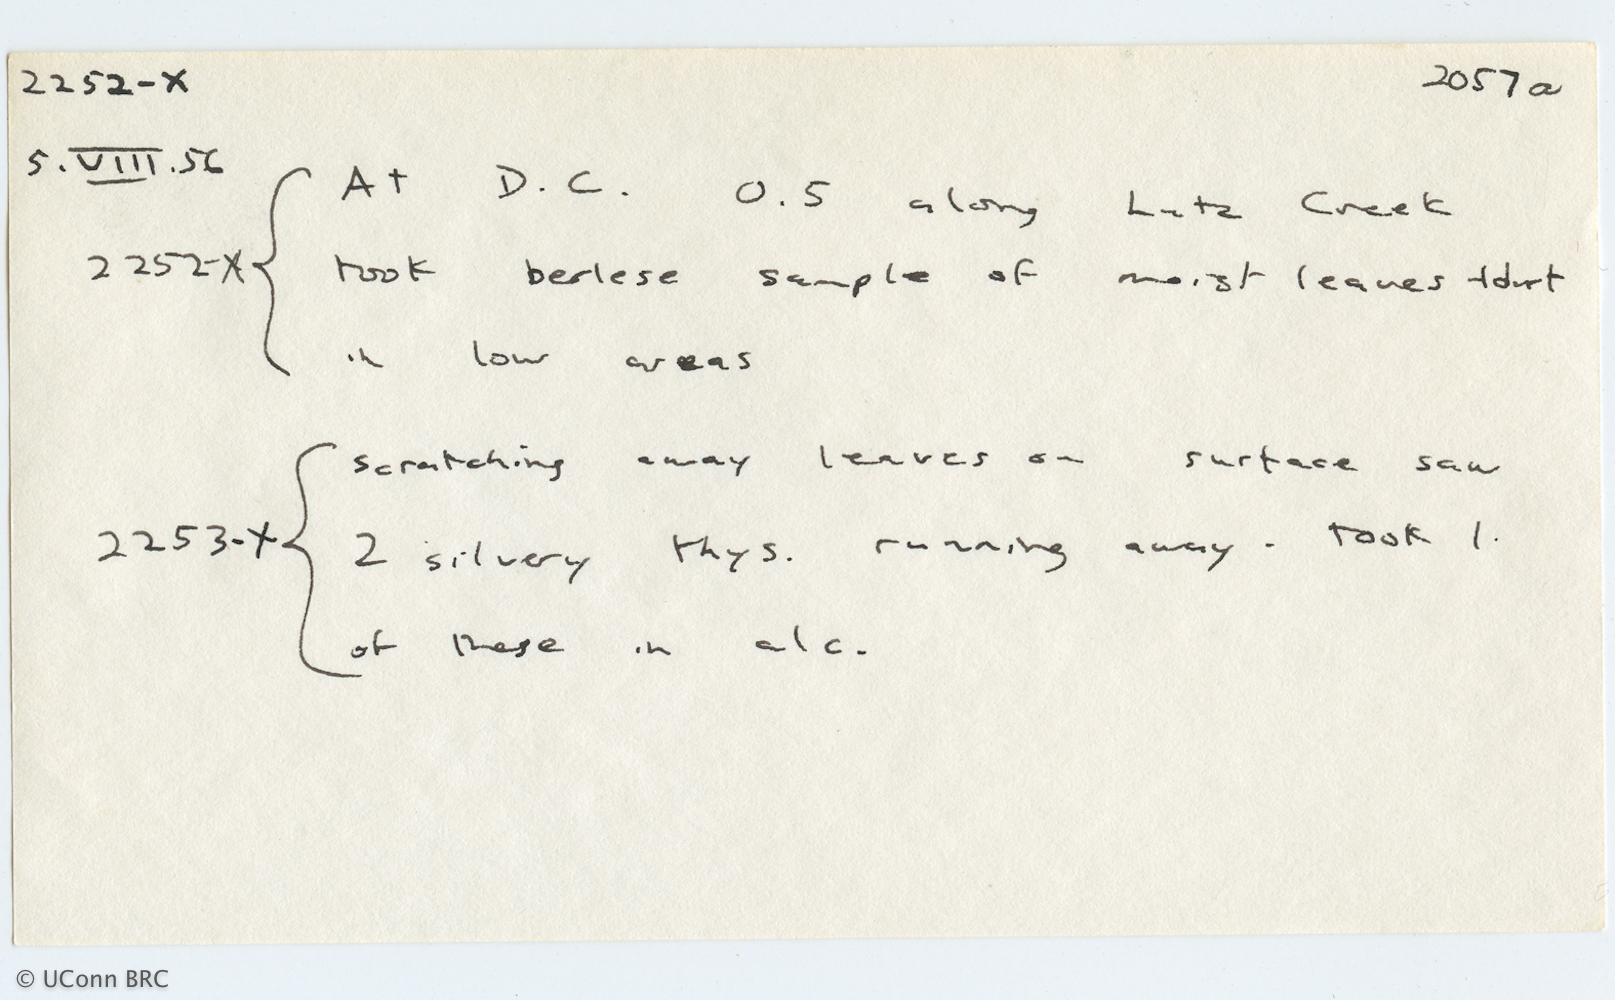 2252-X 2057a
5.VIII.56
At D.C. 0.5 along Lutz Creek
2252-X took berlese sample of moist leaves + dirt
in low areas
scratching away leaves on surface saw
2253-X 2 silvery thys. running away. Took 1.
of these in alc.
© UConn BRC